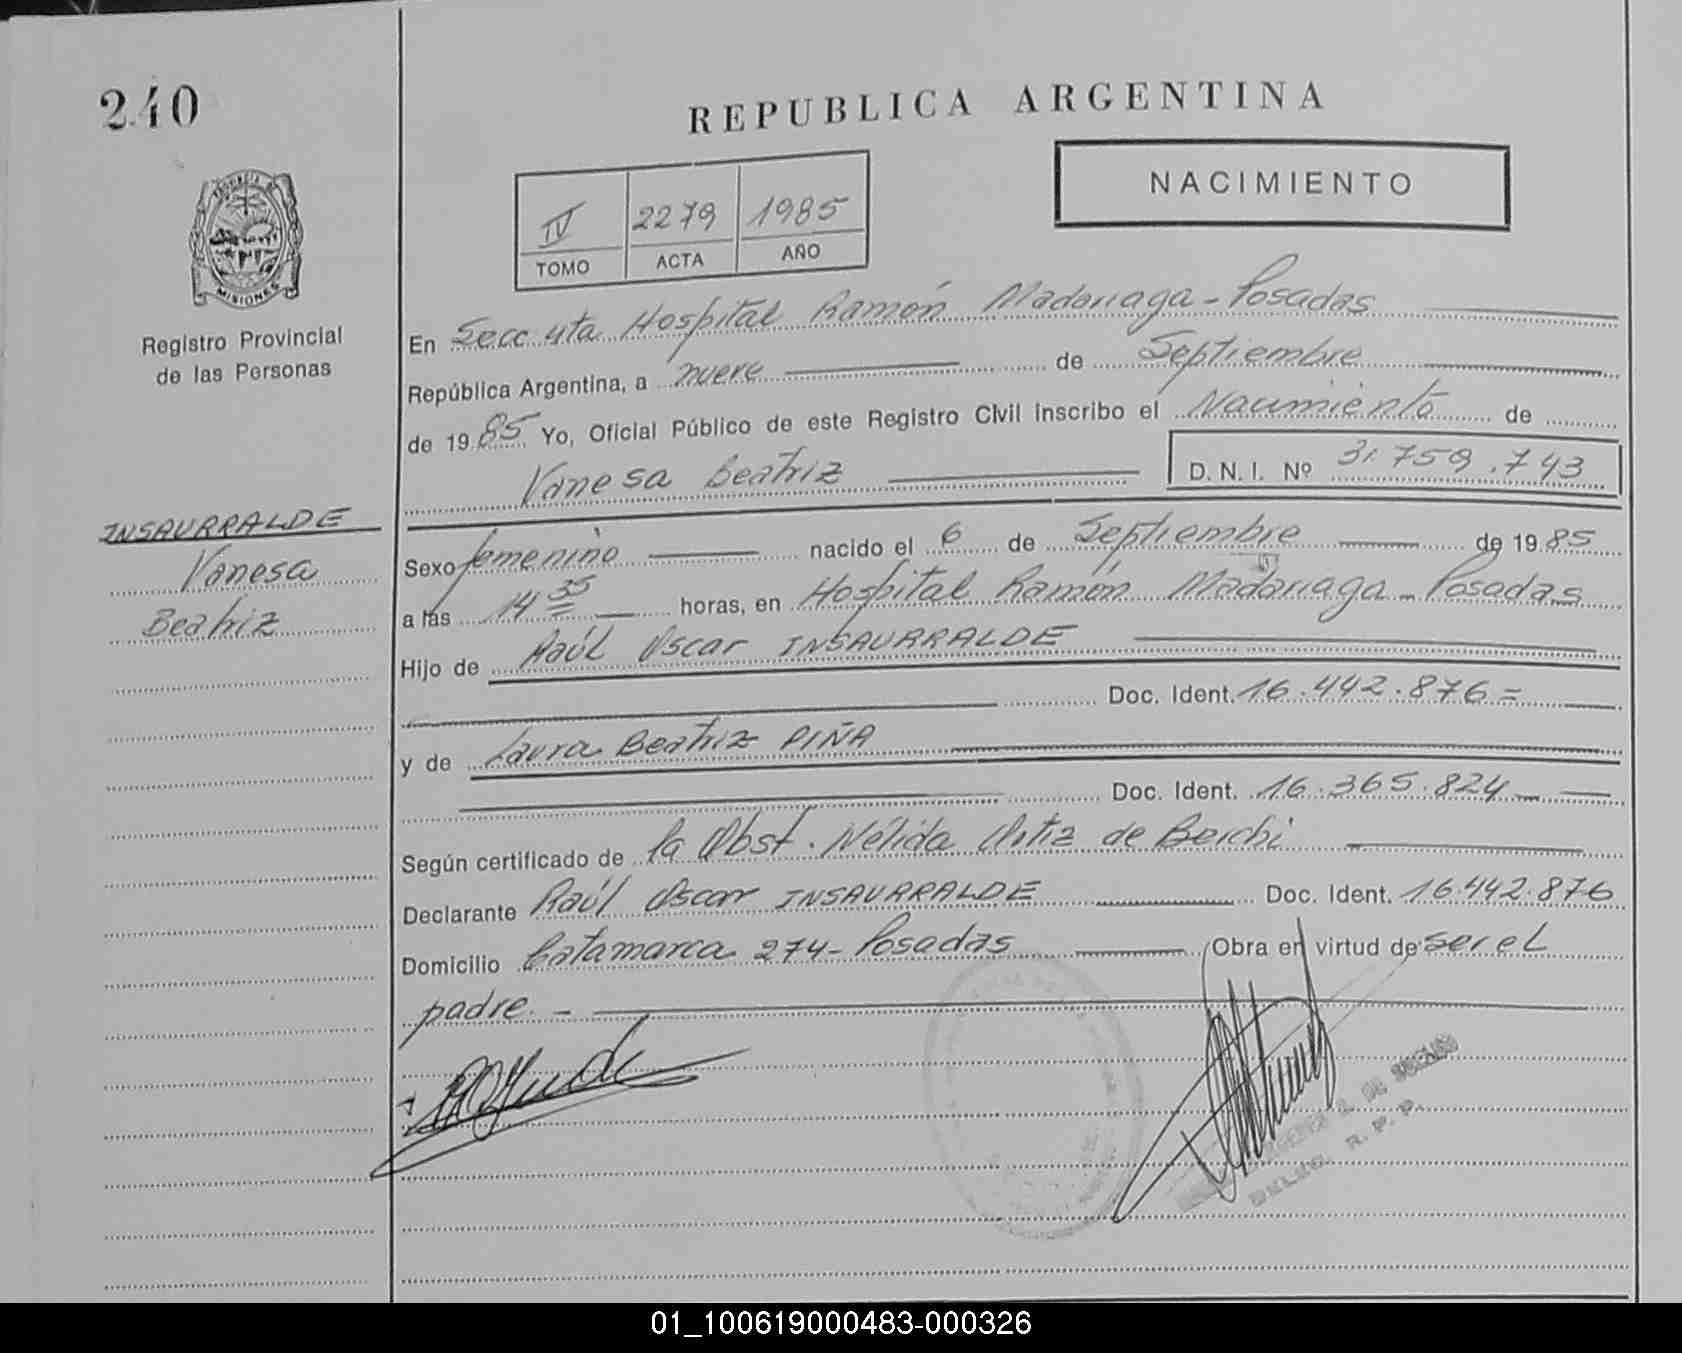 240
REPUBLICA ARGENTINA
NACIMIENTO
IV 2279 1985
TOMO ACTA AÑO
PROVINCIA DE
MISIONES
Registro Provincial
de las Personas
En Secc 4ta Hospital Ramón Madariaga - Posadas
República Argentina, a nueve de Septiembre
de 1985 Yo, Oficial Público de este Registro Civil inscribo el Nacimiento de
Vanesa Beatriz D. N. I. Nº 31.759.743
INSAURRALDE
Vanesa
Beatriz
Sexo femenino nacido el 6 de Septiembre de 1985
a las 14 35 horas, en Hospital Ramón Madariaga - Posadas
Hijo de Raúl Oscar INSAURRALDE
Doc. Ident. 16.442.876=
y de Laura Beatriz PIÑA
Doc. Ident. 16.365.824
Según certificado de la Obst. Nélida Ortiz de Beichi
Declarante Raúl Oscar INSAURRALDE Doc. Ident. 16.442.876
Domicilio Catamarca 274 - Posadas Obra en virtud de ser el
padre. -
DE
R. P. P.
01_100619000483-000326